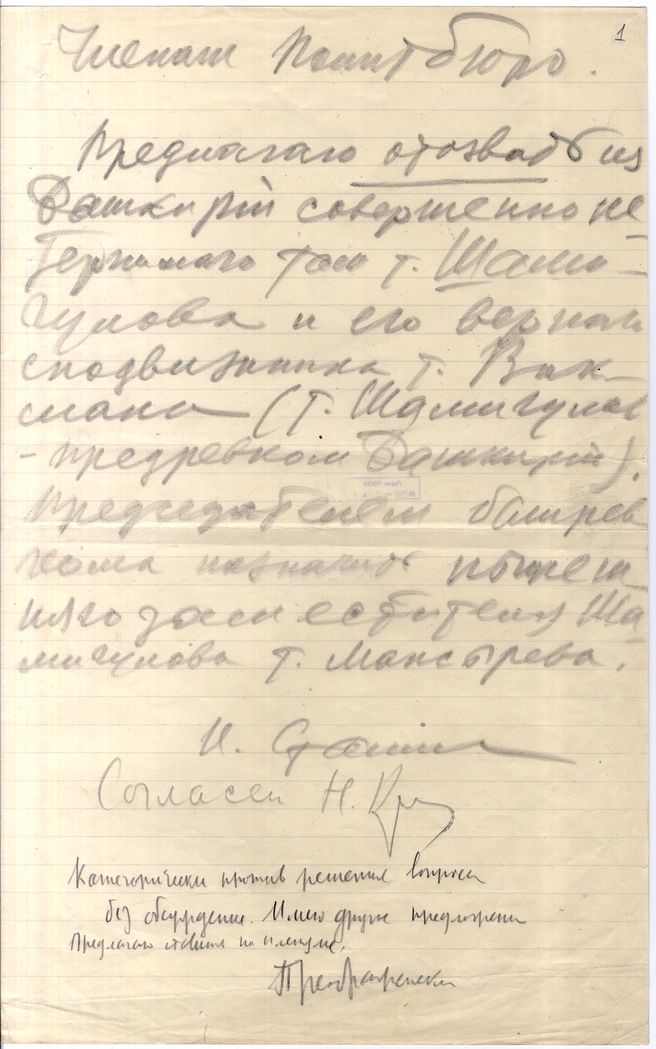 1
Членам Политбюро.
Предлагаю отозвать из
Башкирии совершенно не-
терпимого там т. Шами-
гулова и его верного
сподвижника т. Вик-
мана (т. Шамигулов
- предревком Башкирии).
Председателем башрев
кома назначить нынеш
няго заместителя Ша-
мигулова т. Мансырева.
И. Сталин
Согласен Н. Кр
Категорически против решения вопроса
без обсуждения. Имею другие предложения
Предлагаю ставить на пленуме.
Преображенский